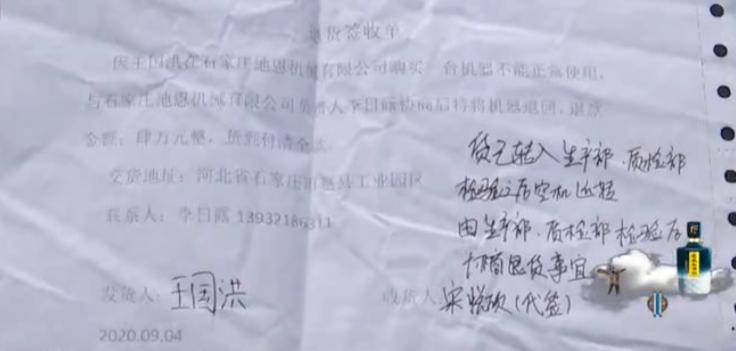 退货签收单
因王国洪在石家庄地恩机械有限公司购买一台机器不能正常使用,
与石家庄地恩机械有限公司负责人李日露协商后特将机器退回,退款
金额:肆万元整,货到付清全款
交货地址:河北省石家庄市赵县工业园区
联系人:李日露 13932186311
货已转入生产部、质检部
检验之后空机运转
由生产部、质检部检验后
协商退货事宜
发货人:王国洪
收货人:宋(代签)
2020.09.04